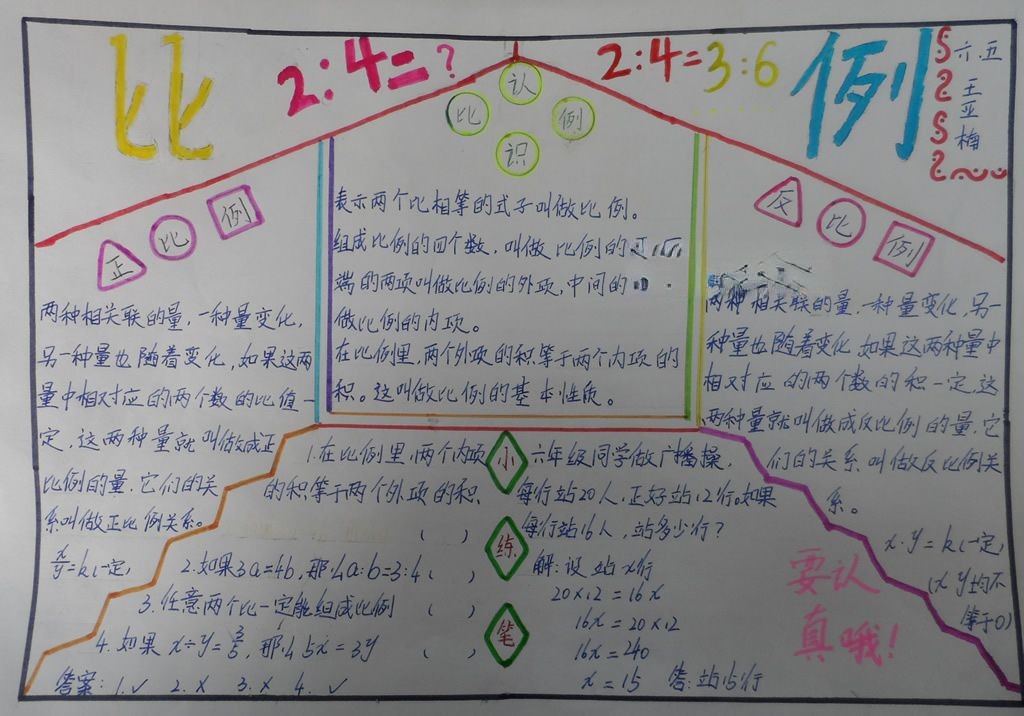 比
2:4=?
2:4=3:6
例
六.五
王亚梅
认
比 例
识
表示两个比相等的式子叫做比例。
组成比例的四个数，叫做比例的
端的两项叫做比例的外项，中间的
做比例的内项。
在比例里，两个外项的积等于两个内项的
积。这叫做比例的基本性质。
正比例
两种相关联的量，一种量变化，
另一种量也随着变化，如果这两
量中相对应的两个数的比值一
定，这两种量就叫做成正
比例的量，它们的关
系叫做正比例关系。
x/y=k(一定)
反比例
两种相关联的量，一种量变化，另一
种量也随着变化，如果这两种量中
相对应的两个数的积一定，这
两种量就叫做成反比例的量，它
们的关系叫做反比例关
系。
x·y=k(一定)
(x y均不
等于0)
小练笔
1.在比例里，两个内项
的积等于两个外项的积
( )
2.如果3a=4b，那么a:b=3:4( )
3.任意两个比一定能组成比例 ( )
4.如果x÷y=3/5，那么5x=3y ( )
答案：1.✓ 2.× 3.× 4.✓
六年级同学做广播操，
每行站20人，正好站12行。如果
每行站16人，站多少行？
解：设站x行
20×12=16x
16x=20×12
16x=240
x=15 答：站15行
要认
真哦！